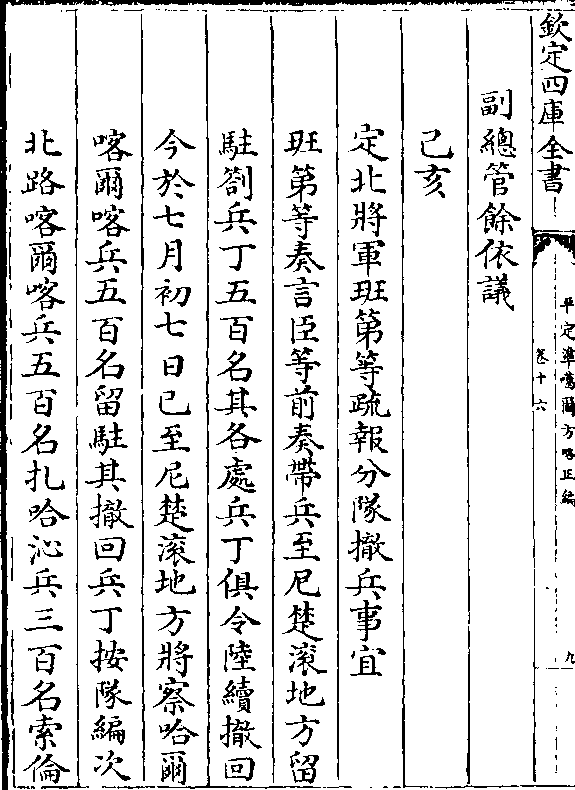 欽定四庫全書
平定準噶爾方略正編
卷十六
九
副總管餘依議
己亥
定北將軍班第等疏報分隊撤兵事宜
班第等奏言臣等前奏帶兵至尼楚滾地方留
駐劄兵丁五百名其各處兵丁俱令陸續撤回
今於七月初七日已至尼楚滾地方將察哈爾
喀爾喀兵五百名留駐其撤回兵丁按隊編次
北路喀爾喀兵五百名扎哈沁兵三百名索倫